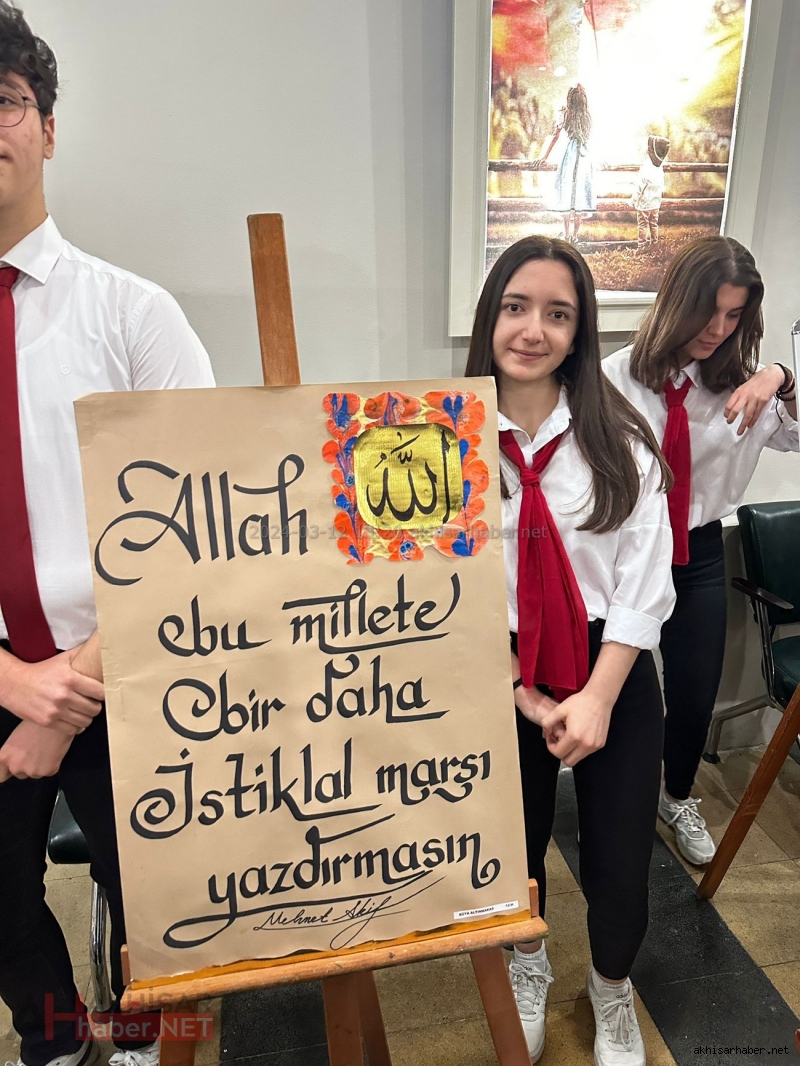 Allah الله
bu millete
bir daha
İstiklal marşı
yazdırmasın
Mehmet Akif
AKHİSAR
haber.NET
akhisarhaber.net